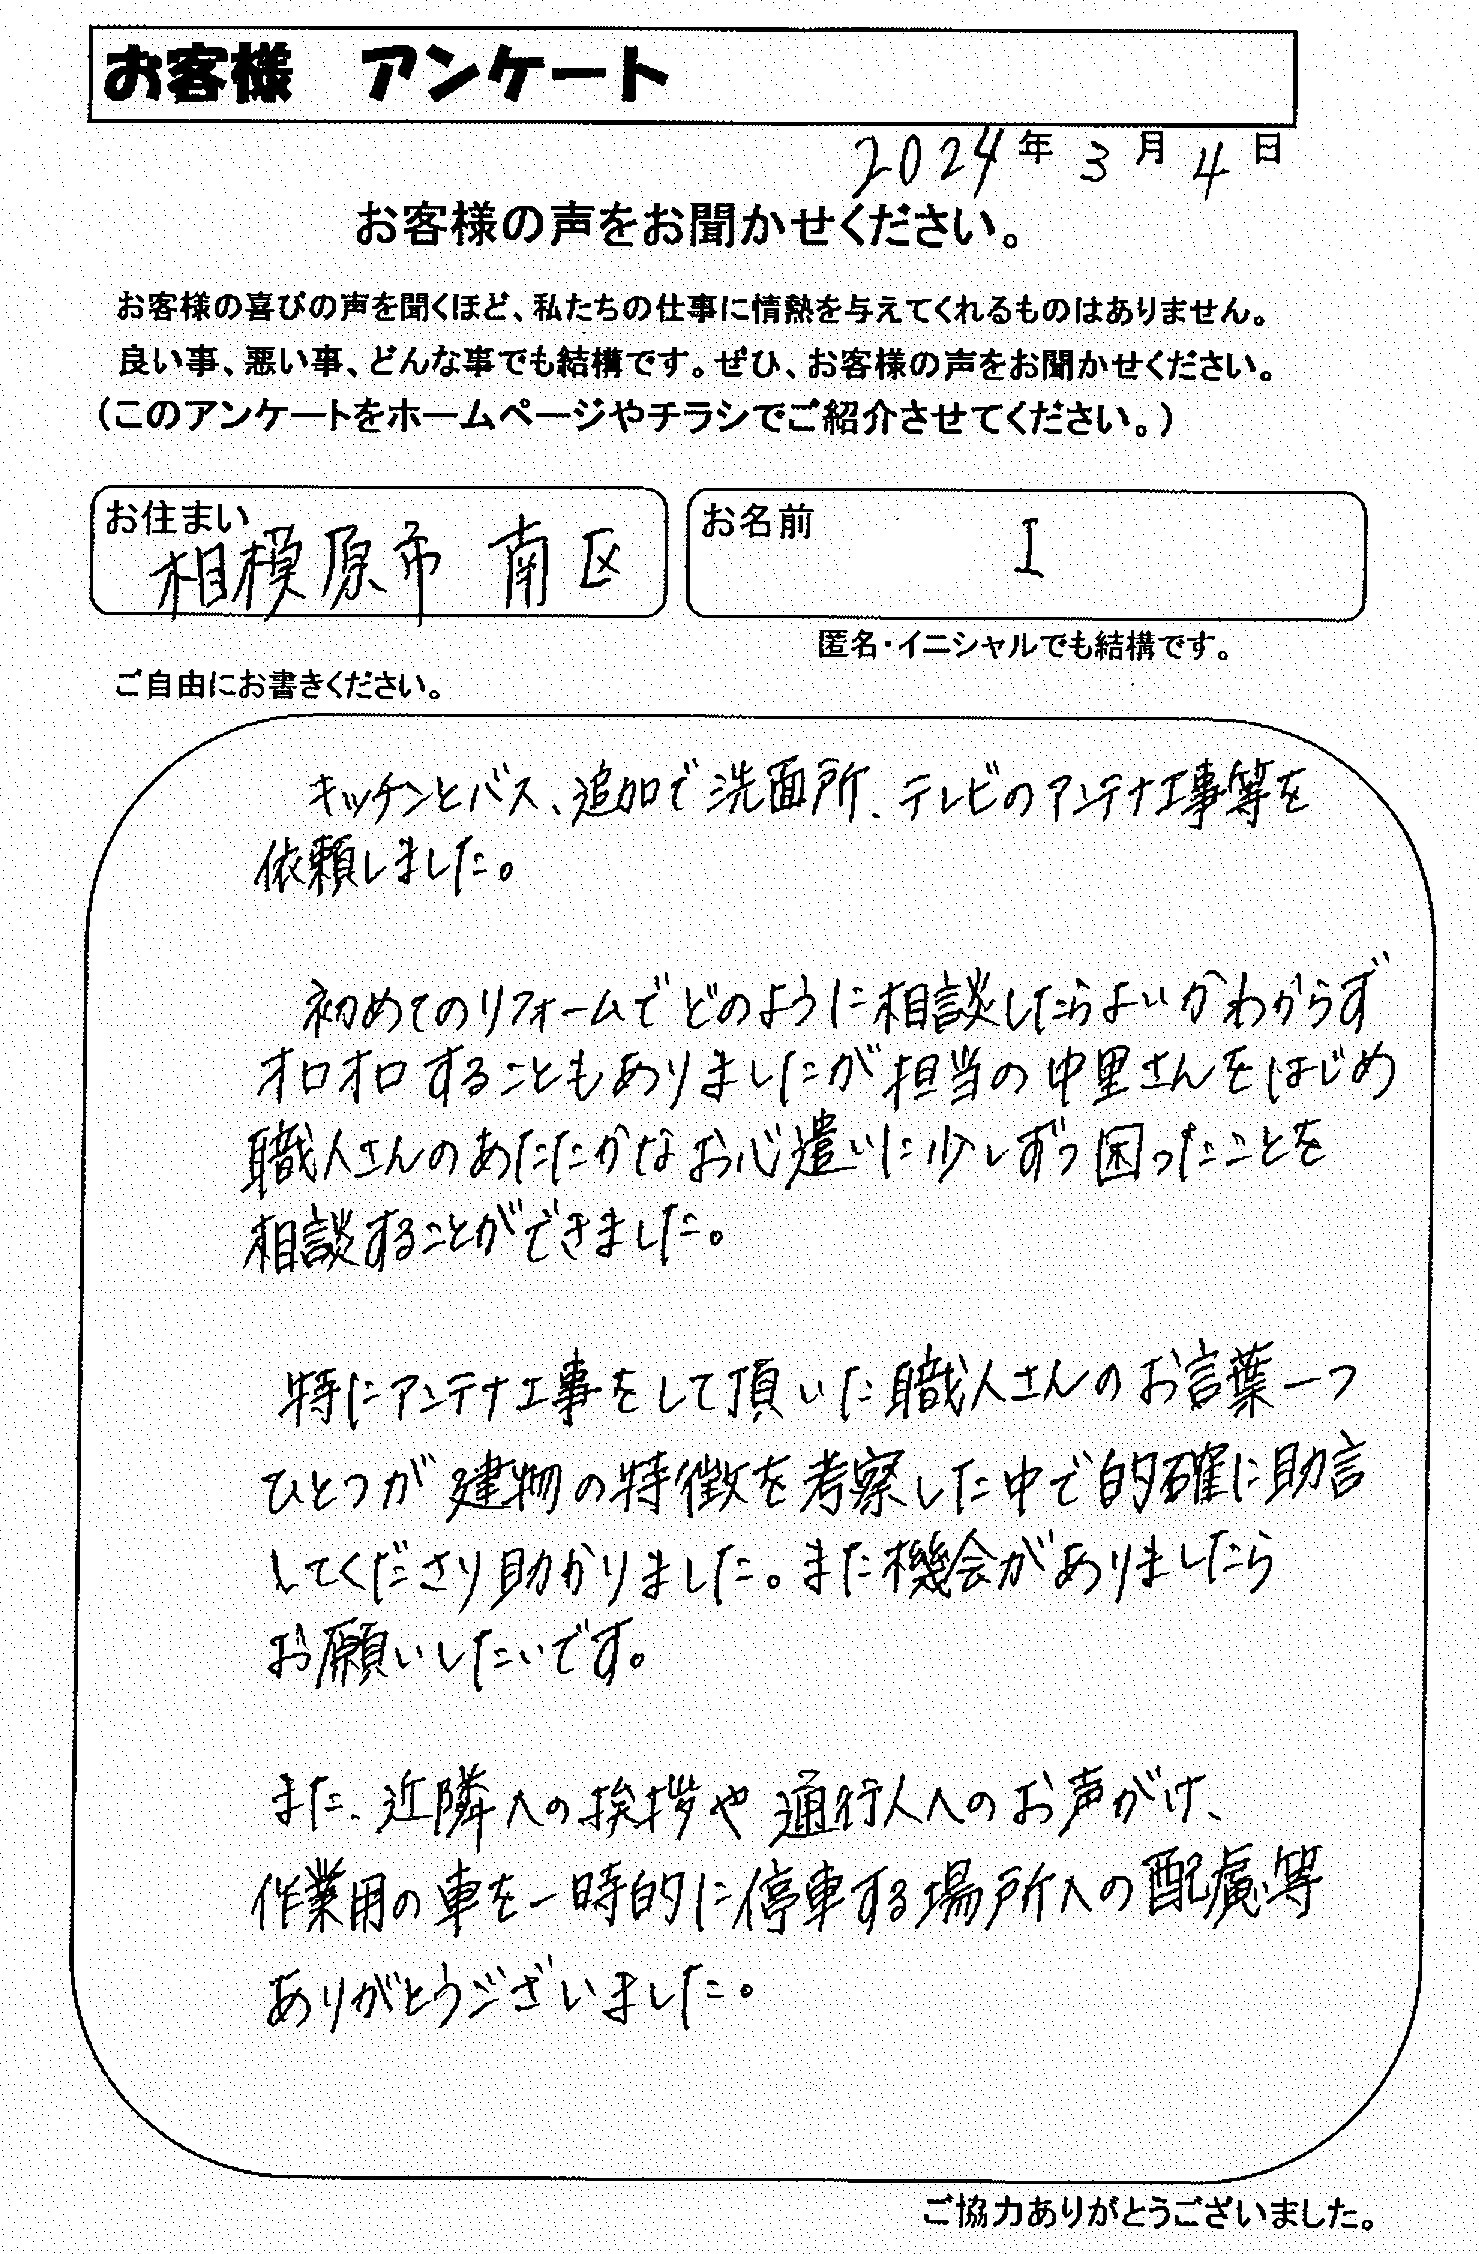 お客様　アンケート
2024年 3月 4日
お客様の声をお聞かせください。
お客様の喜びの声を聞くほど、私たちの仕事に情熱を与えてくれるものはありません。
良い事、悪い事、どんな事でも結構です。ぜひ、お客様の声をお聞かせください。
（このアンケートをホームページやチラシでご紹介させてください。）
お住まい
相模原市 南区
お名前
I
匿名・イニシャルでも結構です。
ご自由にお書きください。
キッチンとバス、追加で洗面所、テレビのアンテナ工事等を
依頼しました。
初めてのリフォームでどのように相談したらよいかわからず
オロオロすることもありましたが担当の中里さんをはじめ
職人さんのあたたかなお心遣いに少しずつ困ったことを
相談することができました。
特にアンテナ工事をして頂いた職人さんのお言葉一つ
ひとつが建物の特徴を考察した中で的確に助言
してくださり助かりました。また機会がありましたら
お願いしたいです。
また、近隣への挨拶や通行人へのお声がけ、
作業用の車を一時的に停車する場所への配慮等
ありがとうございました。
ご協力ありがとうございました。